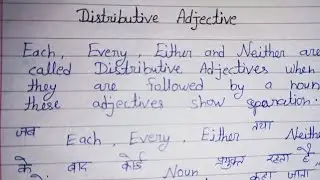 Distributive Adjective
Each, Every, Either and Neither are
called Distributive Adjectives when
they are followed by a noun
these adjectives show separation.
जब Each, Every, Either तथा Neither
के बाद कोई Noun, प्रयुक्त रहता है
कहा जाता